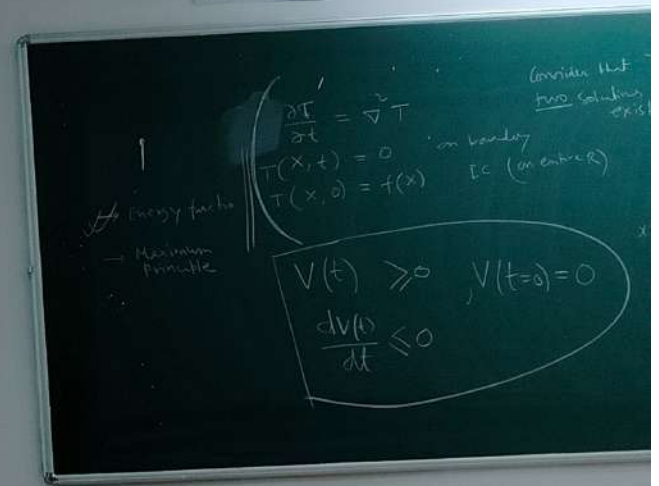 Consider that
two solutions
exist
∂T/∂t = ∇²T
T(x,t) = 0 on boundary
T(x,0) = f(x) IC (on entire R)
Energy functio
→ Maximum
Principle
V(t) ≥ 0 , V(t=0) = 0
dV(t)/dt ≤ 0